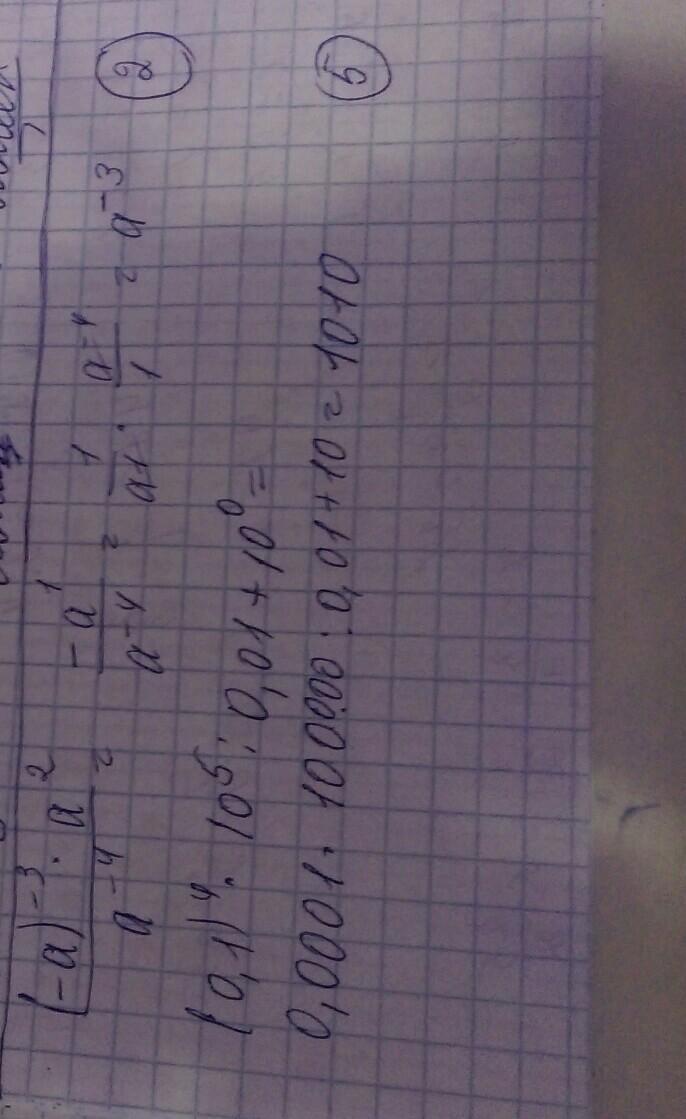 (-a)⁻³ · a² / a⁻⁴ = -a¹ / a⁻⁴ = 1/a1 · a⁻⁴/1 = a⁻³ ②
(0,1)⁴ · 10⁵ : 0,01 + 10⁰ =
0,0001 · 100000 : 0,01 + 10 = 1010 ⑤